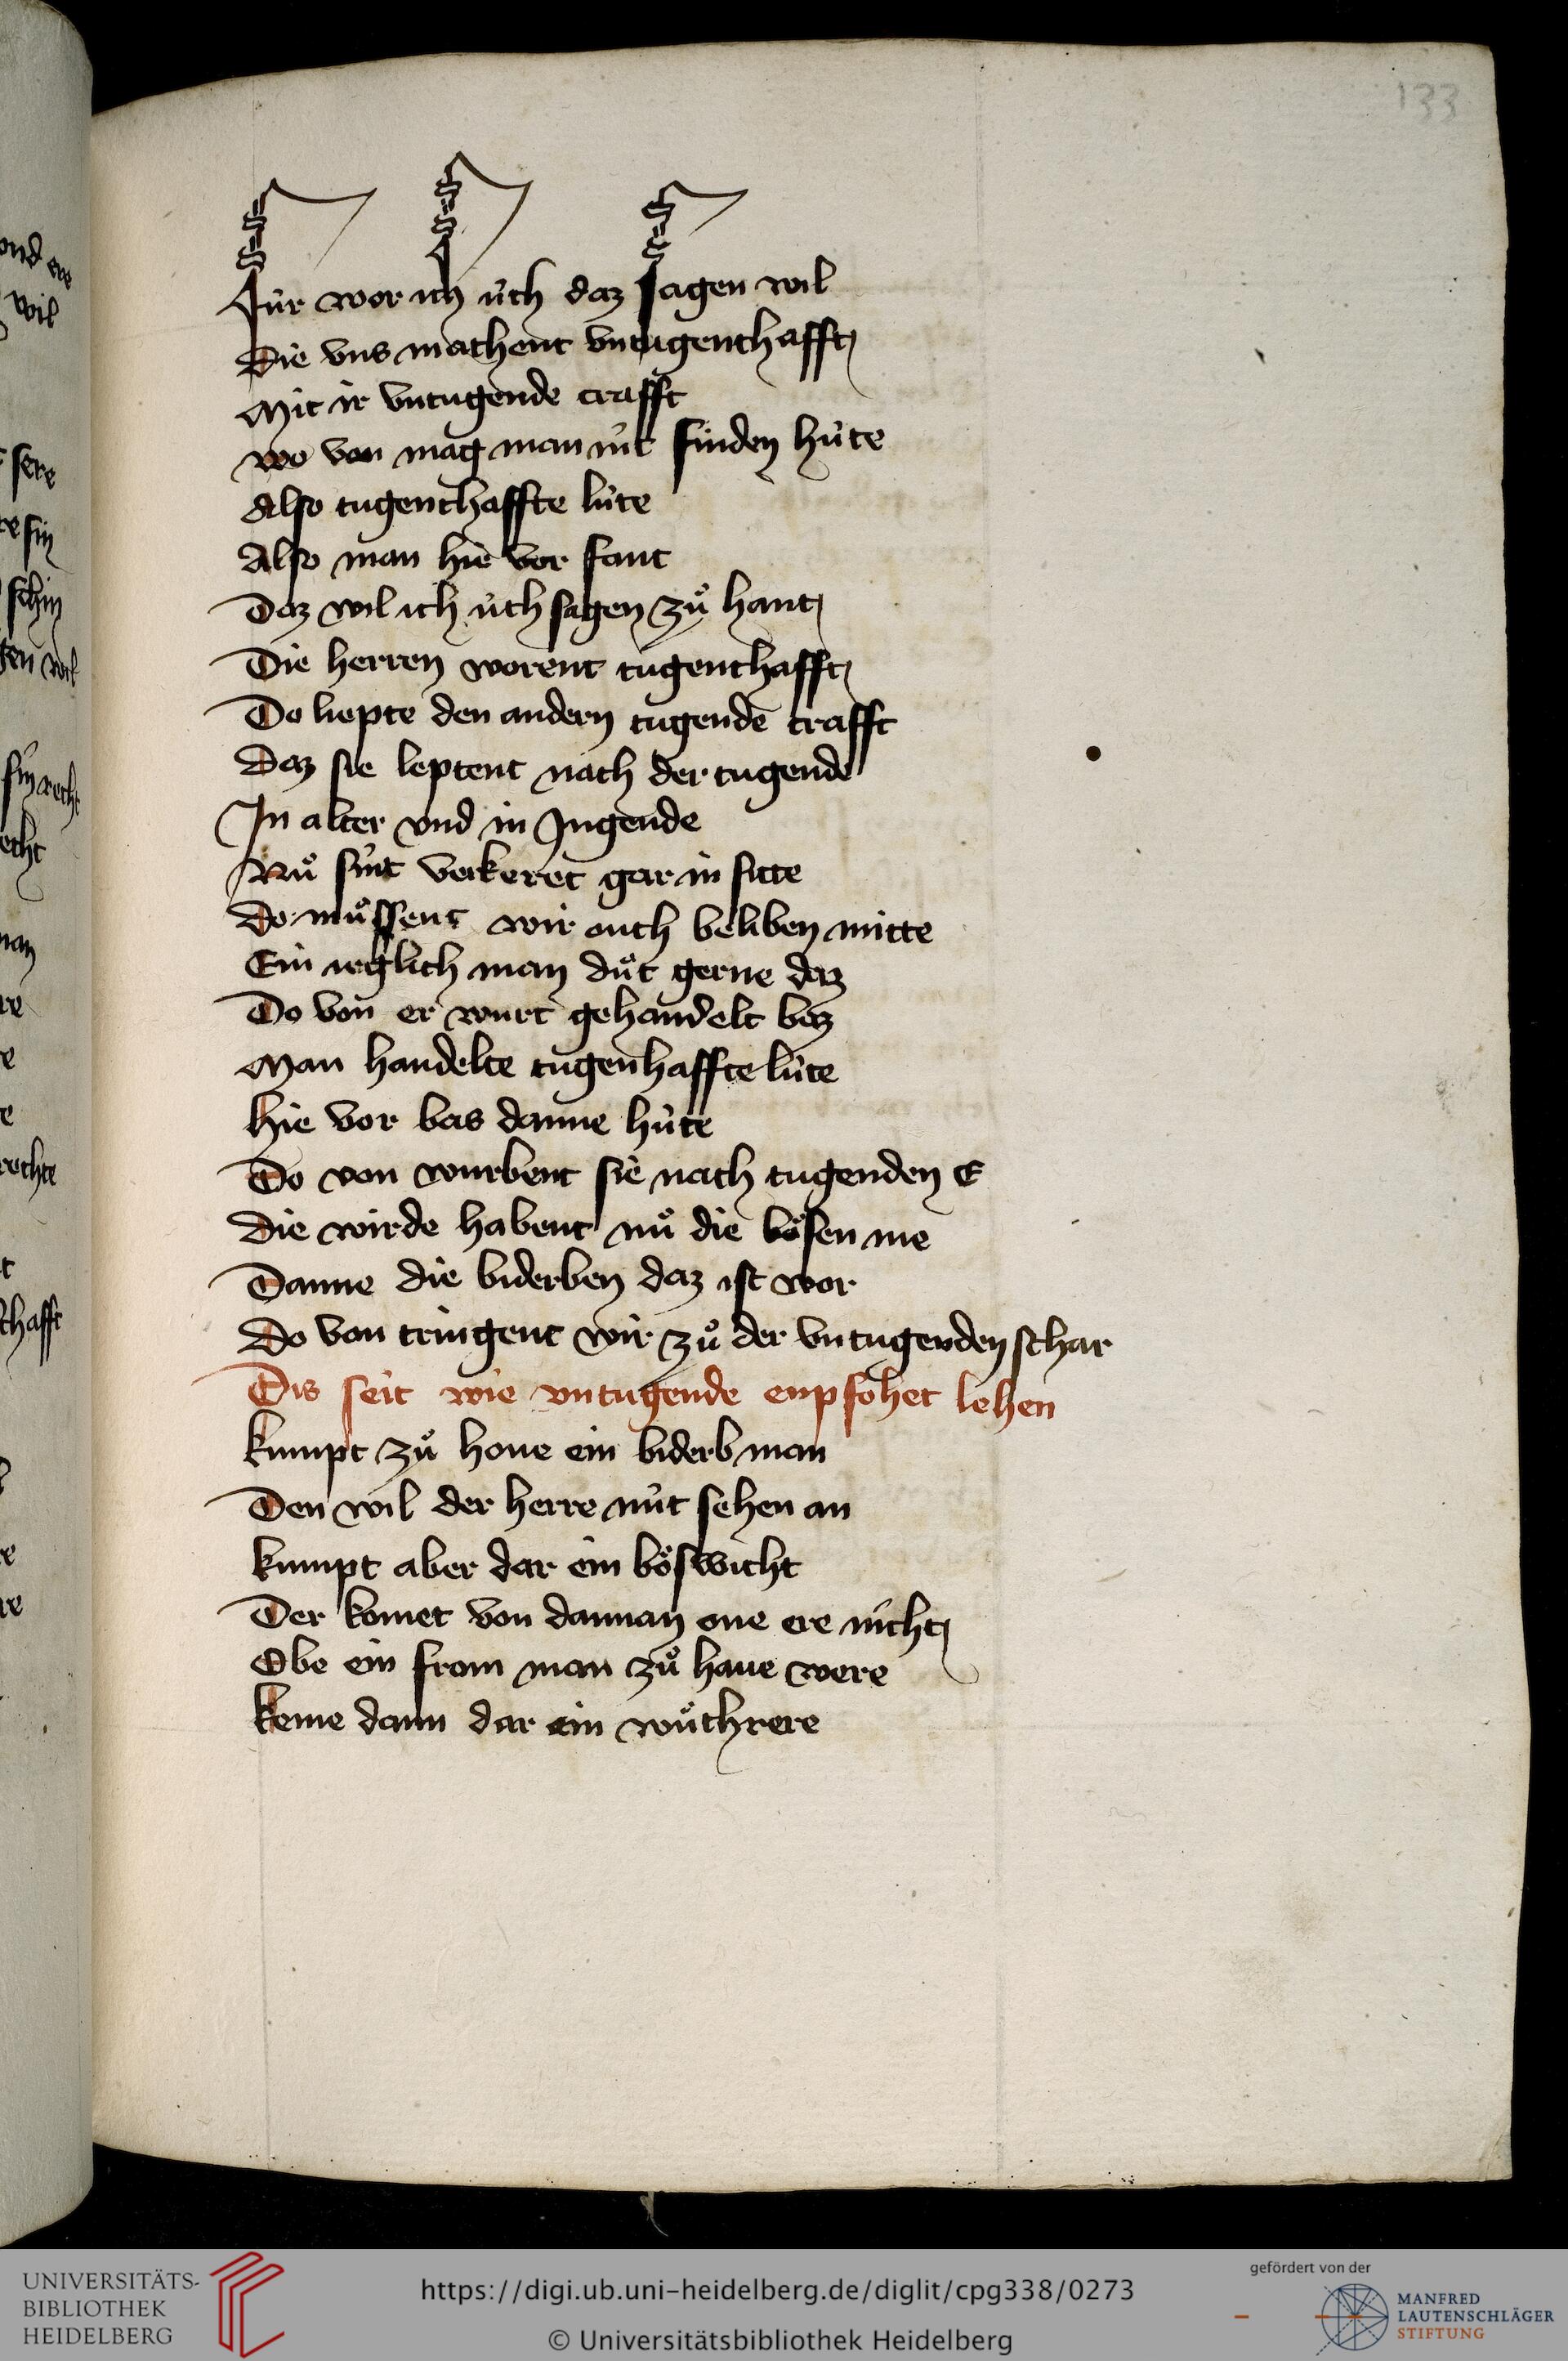 133
Für wor ich uͤch daz sagen wil
Die vns machent vntugenthafft
Mit ir vntugende crafft
Wo von mag man nuͤt finden huͤte
Also tugenthaffte luͤte
Also man hie vor fant
Daz wil ich uͤch sagen zuͦ hant
Die herren worent tugenthafft
Do liepte den andern tugende crafft
Daz sie leptent noch der tugende
In alter vnd in Jugende
Nuͦ sint verkeret gar in sitte
Do muͦssent wir ouch beliben mitte
Ein ieglich man duͦt gerne daz
Do von er wurt gehandelt baz
Man handelte tugenhaffte luͤte
hie vor bas danne huͤte
Do von wurbent sie nach tugenden E
Die wirde habent nuͦ die boͤsen me
Danne die biderben daz ist wor
Do von tringent wir zuͦ der vntugenden schar
Dis seit wie vntugende enpfohet lehen
kumpt zuͦ houe ein biderb man
Den wil der herre nuͤt sehen an
kumpt aber dar ein boͤswicht
Der komet von dannan one ere nicht
Obe ein from man zuͦ houe were
keme dann dar ein wuͦthrere
ond ere
wil
sere
re sin
schin
gen wil
sin recht
echt
man
re
e
e
rechte
t
thafft
e
re
UNIVERSITÄTS-
BIBLIOTHEK
HEIDELBERG
https://digi.ub.uni-heidelberg.de/diglit/cpg338/0273
© Universitätsbibliothek Heidelberg
gefördert von der
MANFRED
LAUTENSCHLÄGER
STIFTUNG